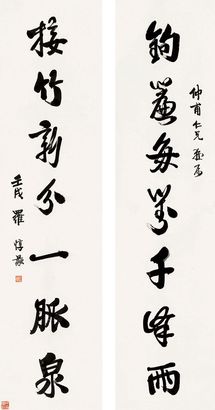 鉤簾每對千峰雨
仲甫仁兄雅属
接竹新分一脈泉
壬戌 羅惇